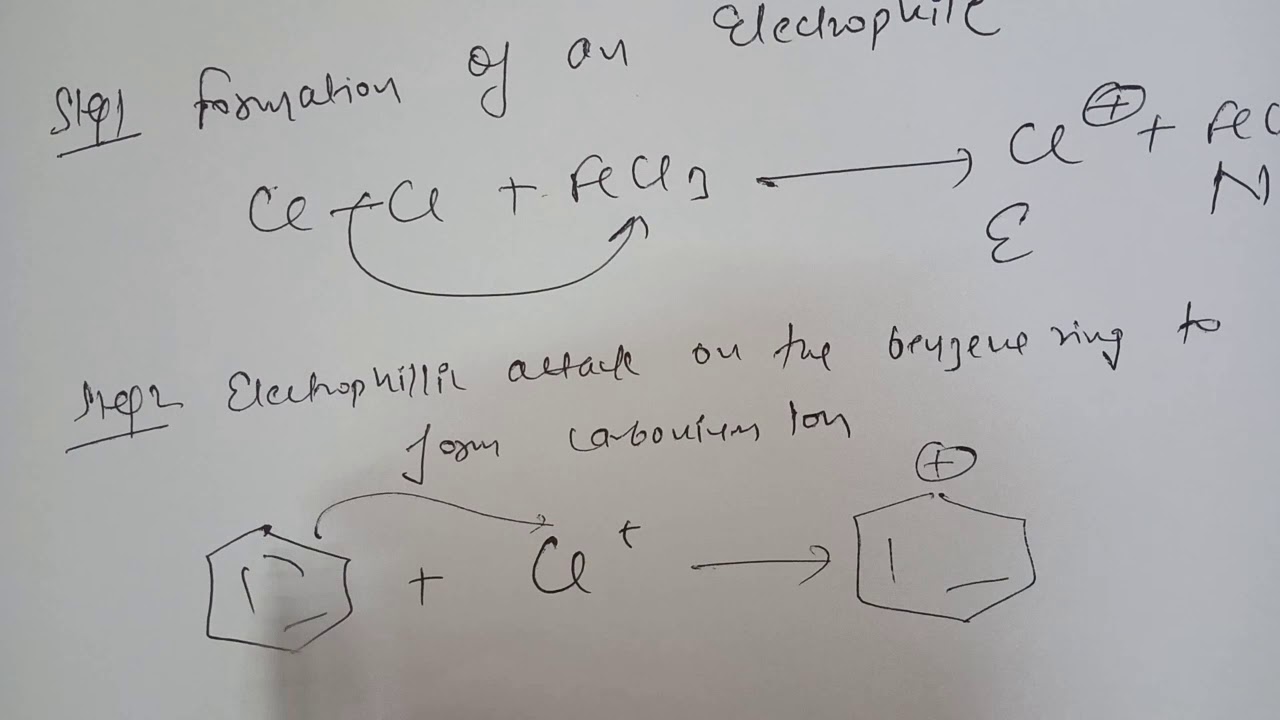 Step1 formation of an Electrophile
Cl-Cl + FeCl3 → Cl⊕ + FeC
E N
Step2 Electrophillic attack on the benzene ring to
form carbonium Ion
⊕
+ Cl+ →